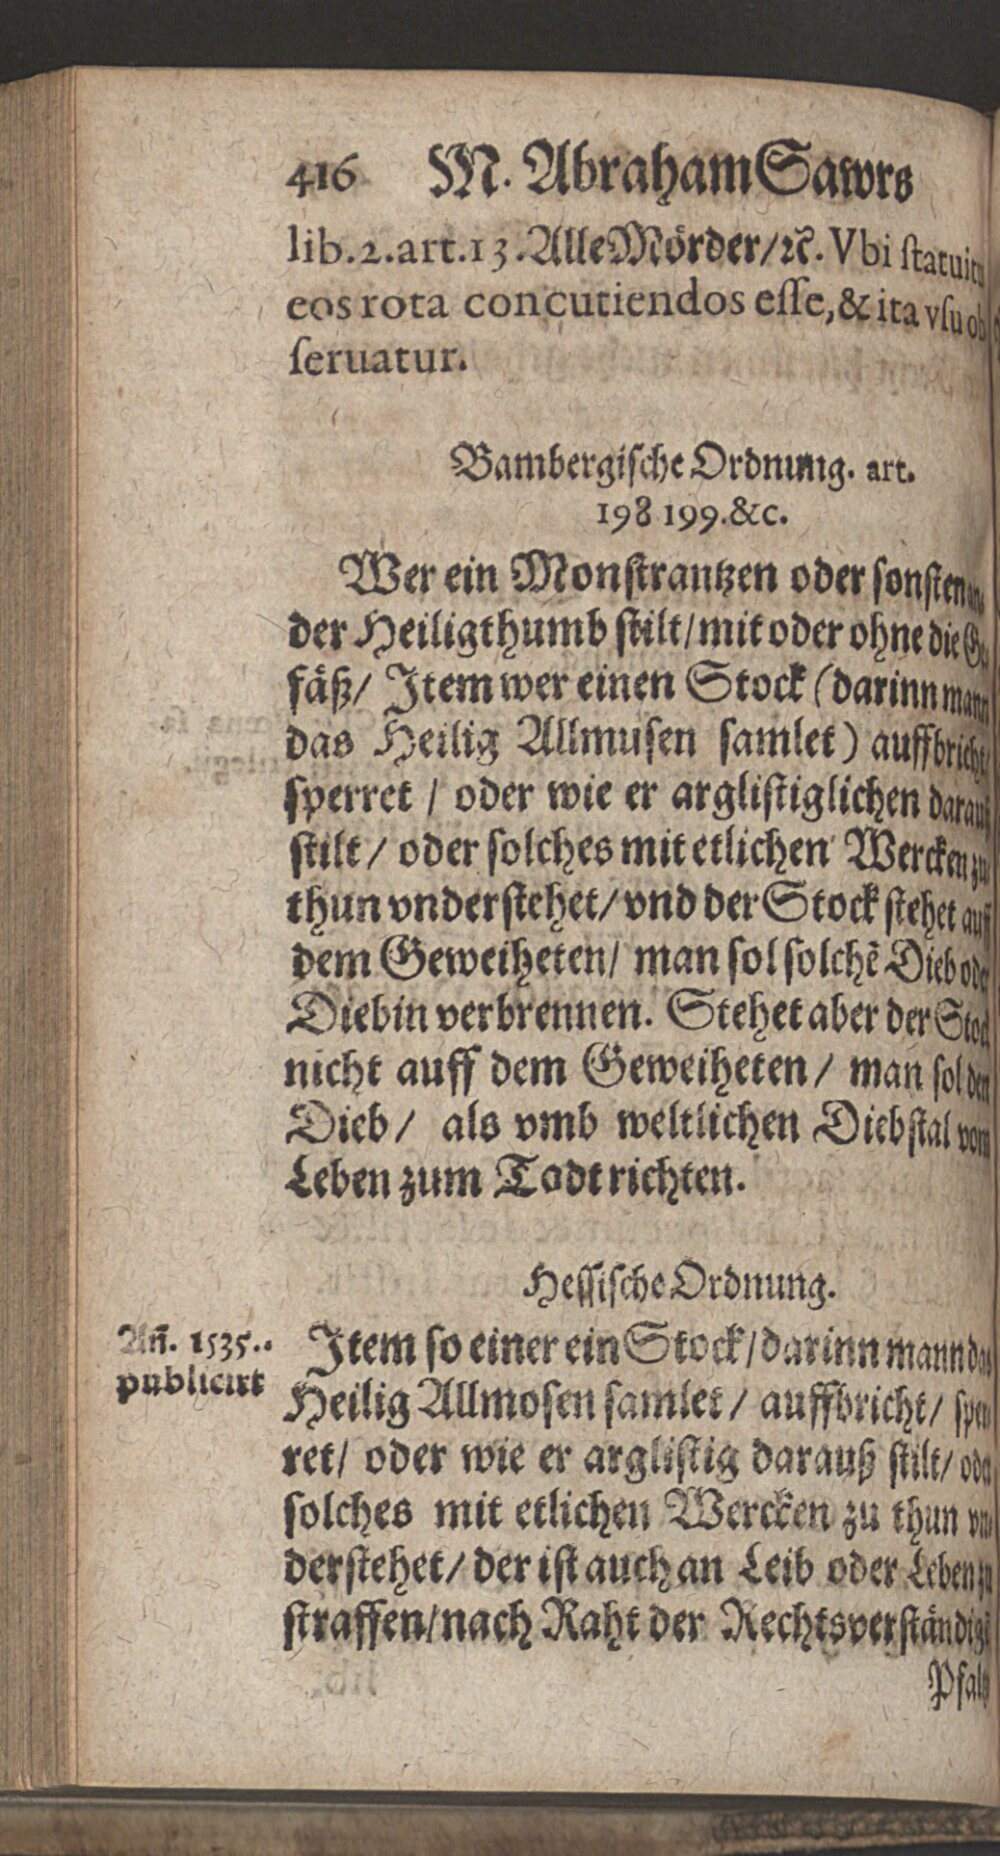 416 M. Abraham Sawrs
lib.2.art.13. Alle Mörder/ꝛc. Vbi statuitur
eos rota concutiendos esse, & ita vsu ob
seruatur.
Bambergische Ordnung. art.
198 199.&c.
Wer ein Monstrantzen oder sonsten
der Heiligthumb stilt/ mit oder ohne die Ge
fäß/ Item wer einen Stock (darinn mann
das Heilig Allmusen samlet) auffbricht/
sperret / oder wie er arglistiglichen darauß
stilt/ oder solches mit etlichen Wercken zu
thun vnderstehet/ vnd der Stock stehet auff
dem Geweiheten/ man sol solchẽ Dieb oder
Diebin verbrennen. Stehet aber der Stock
nicht auff dem Geweiheten/ man sol den
Dieb/ als vmb weltlichen Diebstal vom
Leben zum Todt richten.
Hessische Ordnung.
Añ. 1535..
publicirt
Item so einer ein Stock/ darinn mann das
Heilig Allmosen samlet/ auffbricht/ sper
ret/ oder wie er arglistig darauß stilt/ oder
solches mit etlichen Wercken zu thun vn
derstehet/ der ist auch an Leib oder Leben zu
straffen/ nach Raht der Rechtsverständigẽ
Pfaltz